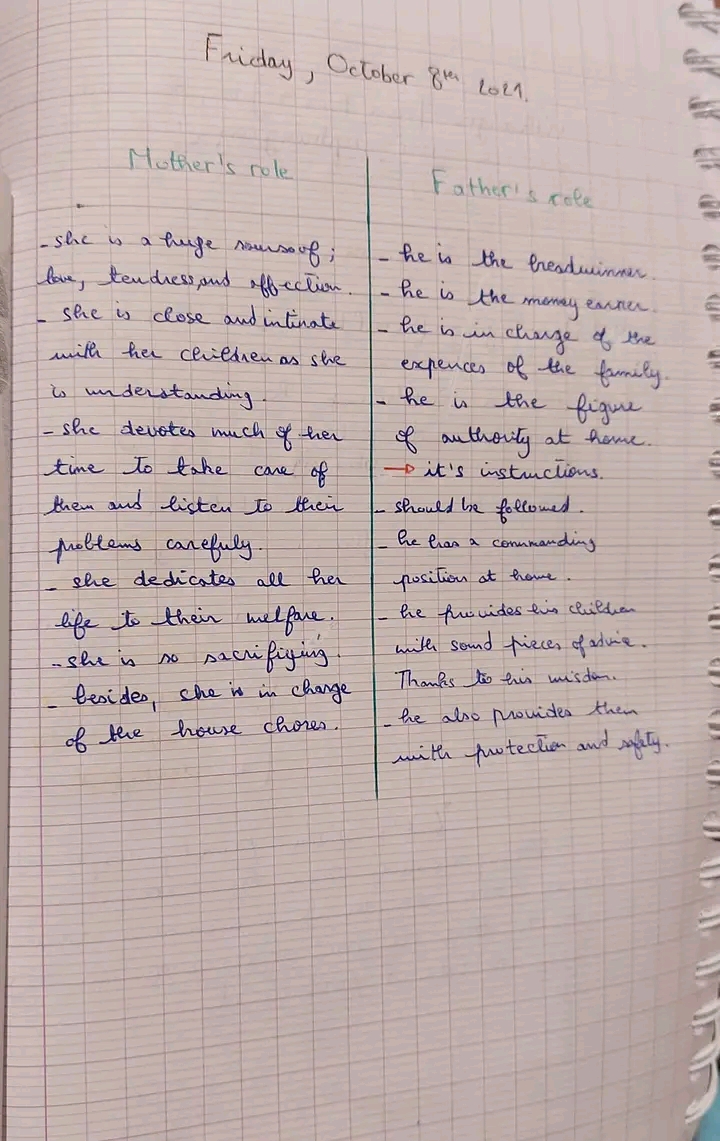 Friday, October 8th 2021.
Mother's role
- she is a huge sourso of;
love, tendress, and affection.
- she is close and intinate
with her children as she
is understanding.
- she devotes much of her
time to take care of
them and listen to their
problems carefuly.
- she dedicates all her
life to their welfare.
- she is so sacrifiying.
- besides, she is in charge
of the house chores.
Father's role
- he is the breadwinner.
- he is the money earner.
- he is in charge of the
expences of the family.
- he is the figure
of authority at home.
→ it's instructions.
- should be followed.
- he has a commanding
position at home.
- he provides his children
with sound pieces of advice.
Thanks to his wisdom.
- he also provides them
with protection and safety.